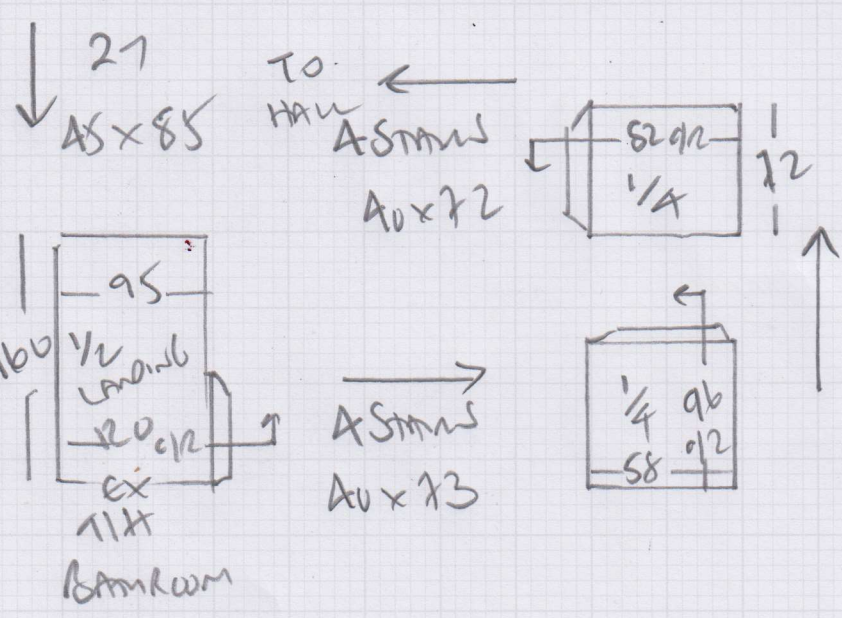 21
45 x 85
TO
HALL
4 STAIRS
40 x 72
82 O/R
1/4
72
95
160
1/2
LANDING
120 O/R
EX
T/H
BATHROOM
4 STAIRS
40 x 73
1/4
96
O/R
58